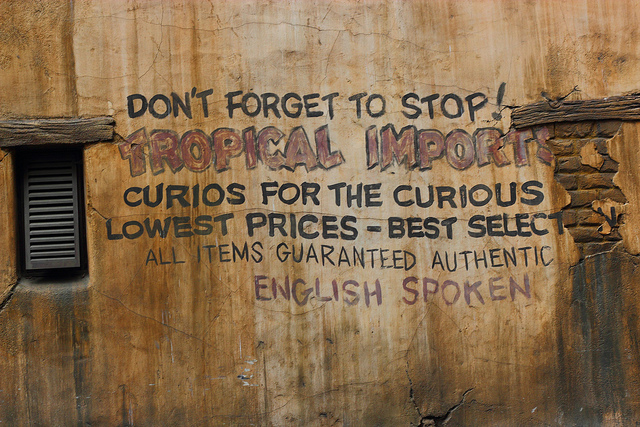 DON'T FORGET TO STOP!
TROPICAL IMPORT
CURIOS FOR THE CURIOUS
LOWEST PRICES - BEST SELECT
ALL ITEMS GUARANTEED AUTHENTIC
ENGLISH SPOKEN